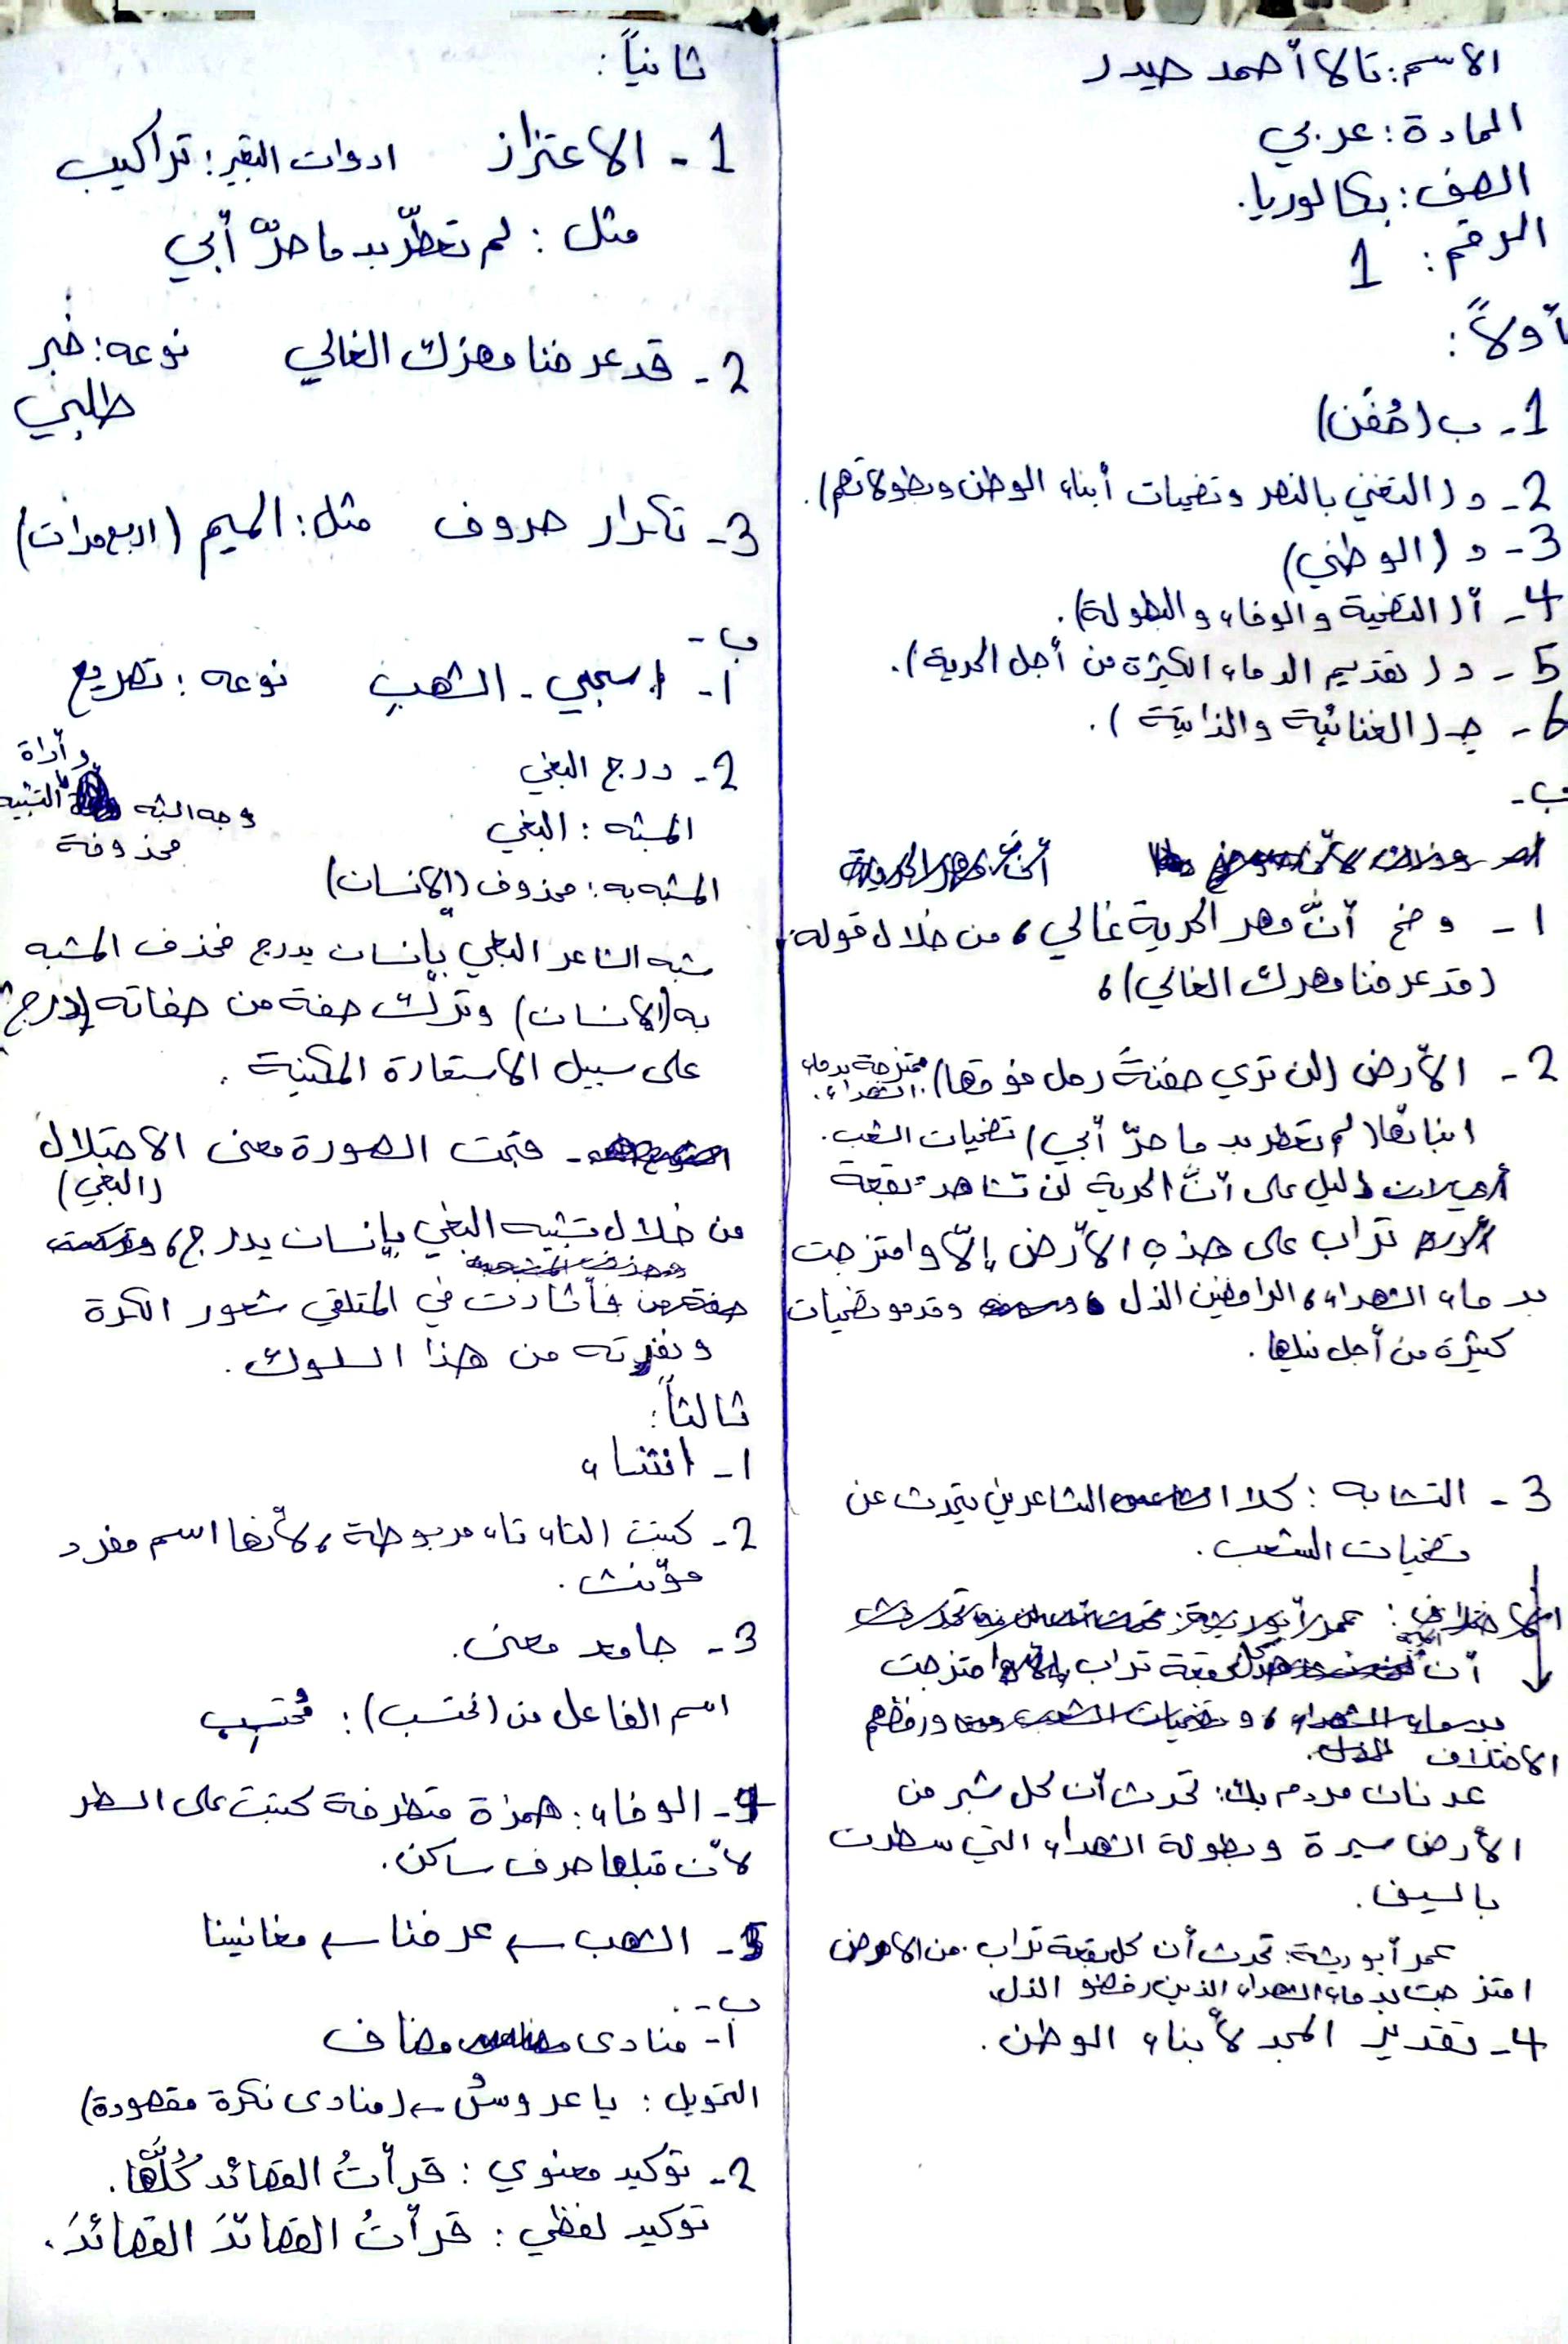 الاسم: تالا أحمد حيدر
المادة: عربي
الصف: بكالوريا.
الرقم: 1
أولاً:
1- ب (حُفَن)
2- د (التغني بالنصر وتضحيات أبناء الوطن وبطولاتهم).
3- د (الوطني)
4- أ (التضحية والوفاء والبطولة).
5- د (تقديم الدماء الكثيرة من أجل الحرية).
6- جـ (الغنائية والذاتية).
ب-
1- وضح أنَّ مهر الحرية غالي، من خلال قوله:
(قد عرفنا مهرك الغالي)،
2- الأرض (لن تري حفنةَ رمل فوقها) ممتزجة بدماء الشهداء.
ابنائها (لم تعطر بدما حرّ أبي) تضحيات الشعب.
دليل على أنَّ الحرية لن تشاهد بقعة
تراب على هذه الأرض إلّا وامتزجت
بدماء الشهداء، الرافضين الذل وقدمو تضحيات
كثيرة من أجل نيلها.
3- التشابه: كلا الشاعرين يتحدث عن
تضحيات الشعب.
الاختلاف
عدنان مردم بك: تحدث أن كل شبر من
الأرض سيرة وبطولة الشهداء التي سطرت
بالسيف.
عمر أبو ريشة: تحدث أن كل بقعة تراب من الارض
امتزجت بدماء الشهداء الذين رفضو الذل.
4- تقدير المجد لأبناء الوطن.
ثانياً:
1- الاعتزاز ادوات التعبير: تراكيب
مثل: لم تعطّر بدما حرّ أبي
2- قد عرفنا مهرك الغالي نوعه: خبر
طلبي
3- تكرار حروف مثل: الميم (اربع مرات)
ب-
1- اسحبي - الشهبِ نوعه: تصريع
2- درج البغي
المشبه: البغي وجه الشبه وأداة التشبيه محذوفة
المشبه به: محذوف (الإنسان)
شبه الشاعر البغي بإنسان يدرج فحذف المشبه
به (الإنسان) وترك صفة من صفاته (درج)
على سبيل الاستعارة المكنية.
- قبحت الصورة معنى الاحتلال
(البغي)
من خلال تشبيه البغي بإنسان يدرج،
فأثارت في المتلقي شعور الكرة
ونفرته من هذا السلوك.
ثالثاً:
1- انثناء
2- كتبت التاء تاء مربوطة، لأنها اسم مفرد
مؤنث.
3- جامد معنى.
اسم الفاعل من (احتسب): مُحتسِب
4- الوفاء: همزة متطرفة كتبت على السطر
لأن قبلها حرف ساكن.
5- الشهب ← عرفنا ← مغانينا
ب-
1- منادى مضاف
التحويل: يا عروسُ ← (منادى نكرة مقصودة)
2- توكيد معنوي: قرأتُ القصائد كُلَّها.
توكيد لفظي: قرأتُ القصائدَ القصائدَ.